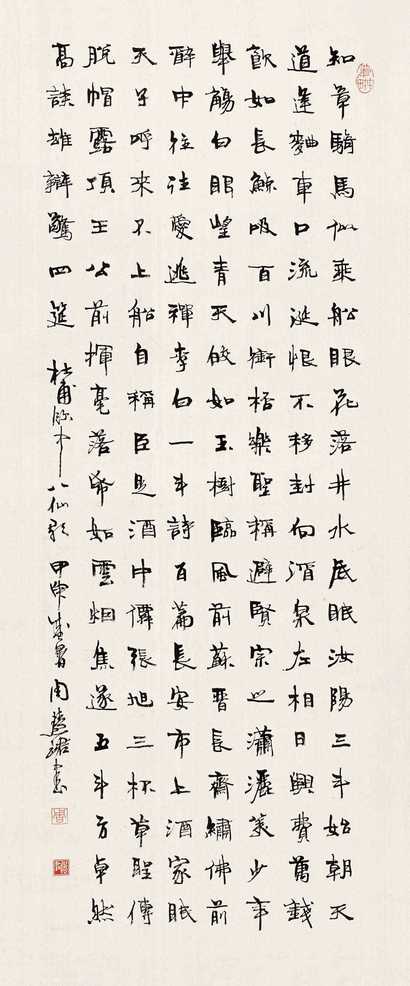 知章騎馬似乘船眼花落井水底眠汝陽三斗始朝天
道逢麴車口流涎恨不移封向酒泉左相日興費萬錢
飲如長鯨吸百川銜桮樂聖稱避賢宗之瀟灑美少年
舉觴白眼望青天皎如玉樹臨風前蘇晉長齋繡佛前
醉中往往愛逃禪李白一斗詩百篇長安市上酒家眠
天子呼來不上船自稱臣是酒中僊張旭三杯草聖傳
脫帽露頂王公前揮毫落紙如雲烟焦遂五斗方卓然
高談雄辯驚四筵 杜甫飲中八仙歌 甲申盛暑周慧珺書